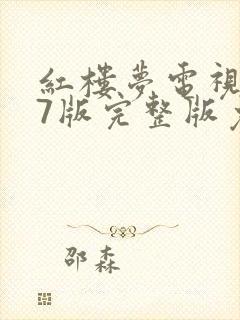 紅樓夢電視
7版完整版
邵森